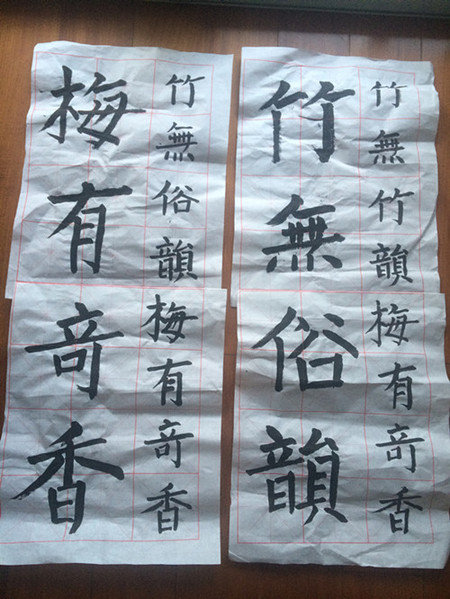 竹無竹韻梅有竒香
竹無俗韻
竹無俗韻梅有竒香
梅有竒香